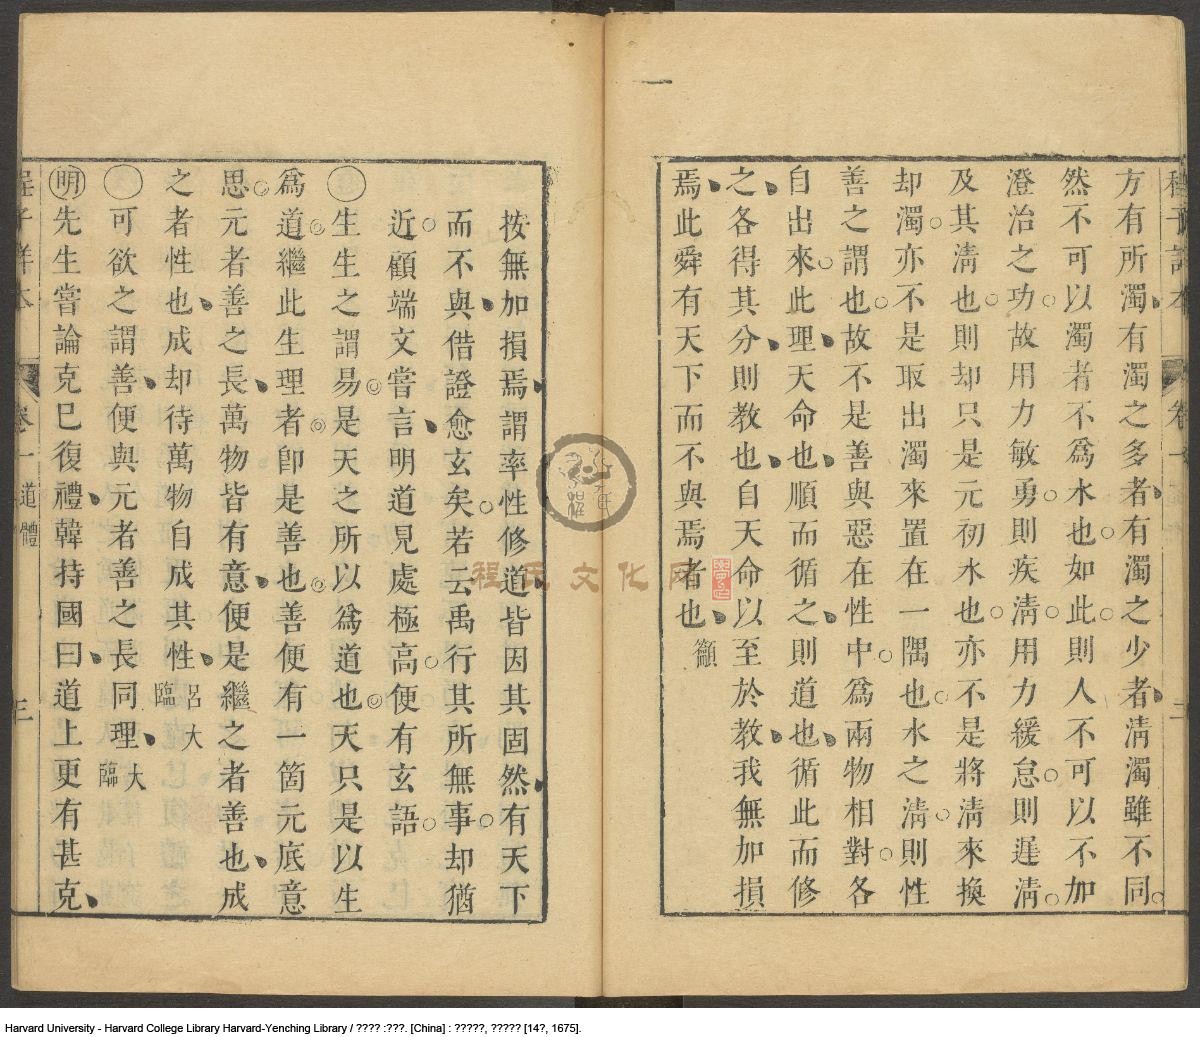 方有所濁有濁之多者有濁之少者清濁雖不同
然不可以濁者不爲水也如此則人不可以不加
澄治之功故用力敏勇則疾清用力緩怠則遲清
及其清也則却只是元初水也亦不是將清來換
却濁亦不是取出濁來置在一隅也水之清則性
善之謂也故不是善與惡在性中爲兩物相對各
自出來此理天命也順而循之則道也循此而修
之各得其分則教也自天命以至於教我無加損
焉此舜有天下而不與焉者也籲
按無加損焉謂率性修道皆因其固然有天下
而不與借證愈玄矣若云禹行其所無事却猶
近顧端文嘗言明道見處極高便有玄語
〇生生之謂易是天之所以爲道也天只是以生
爲道繼此生理者卽是善也善便有一箇元底意
思元者善之長萬物皆有意便是繼之者善也成
之者性也成却待萬物自成其性呂大臨
〇可欲之謂善便與元者善之長同理大臨
明先生嘗論克巳復禮韓持國曰道上更有甚克
卷一 道體
三
程氏文化网
Harvard University - Harvard College Library Harvard-Yenching Library / ???? :???. [China] : ?????, ????? [14?, 1675].